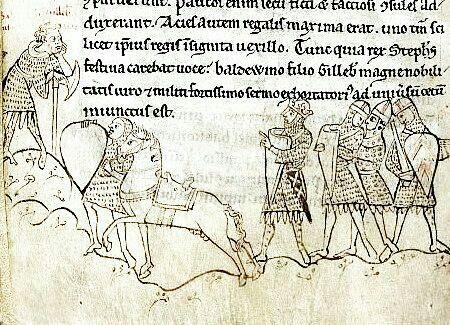 Pauci enim secū ficti & factiosi ꝯsules ad
duxerant. Acies autem regalis maxima erat. uno tm̄ sci
licet ip̄ius regis insignita uexillo. Tunc quia rex Steph̄s
festiua carebat uoce: baldewino filio Gilleb̄ magne nobili
tatis uiro & militi fortissimo sermo exhortatoriꝰ ad uniūsū cetū
iniunctus est.